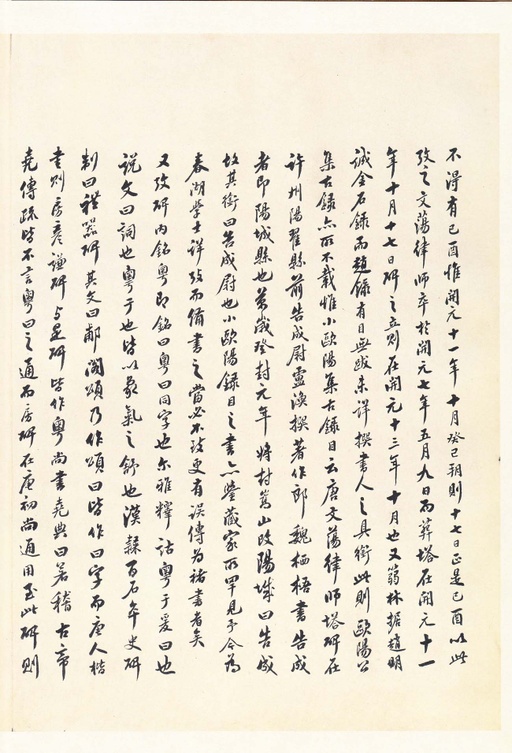 不得有己酉惟開元十一年十月癸巳朔則十七日正是己酉以此
攷之文蕩律師卒於開元七年五月九日而葬塔在開元十一
年十月十七日碑之立則在開元十三年十月也又翁林據趙明
誠金石錄而趙錄有目無跋未詳撰書人之具銜此則歐陽公
集古錄亦所不載惟小歐陽集古錄目云唐文蕩律師塔碑在
許州陽翟縣前告成尉盧渙撰著作郎魏栖梧書告成
者即陽城縣也萬歲登封元年將封嵩山改陽城曰告成
故其銜曰告成尉也小歐陽錄目之書亦鑒藏家所罕見予今為
春湖學士詳攷而備書之當必不致更有誤傳為褚書者矣
又攷碑內銘粵即銘曰粵曰同字也尔雅釋詁粵于爰曰也
說文曰詞也粵于也皆以象氣之舒也漢隸百石卒史碑
制曰禮器碑其文曰郙閣頌乃作頌曰皆作曰字而唐人楷
書則房彥謙碑与是碑皆作粵尚書堯典曰若稽古帝
堯傳疏皆不言粵曰之通而房碑在唐初尚通用至此碑則